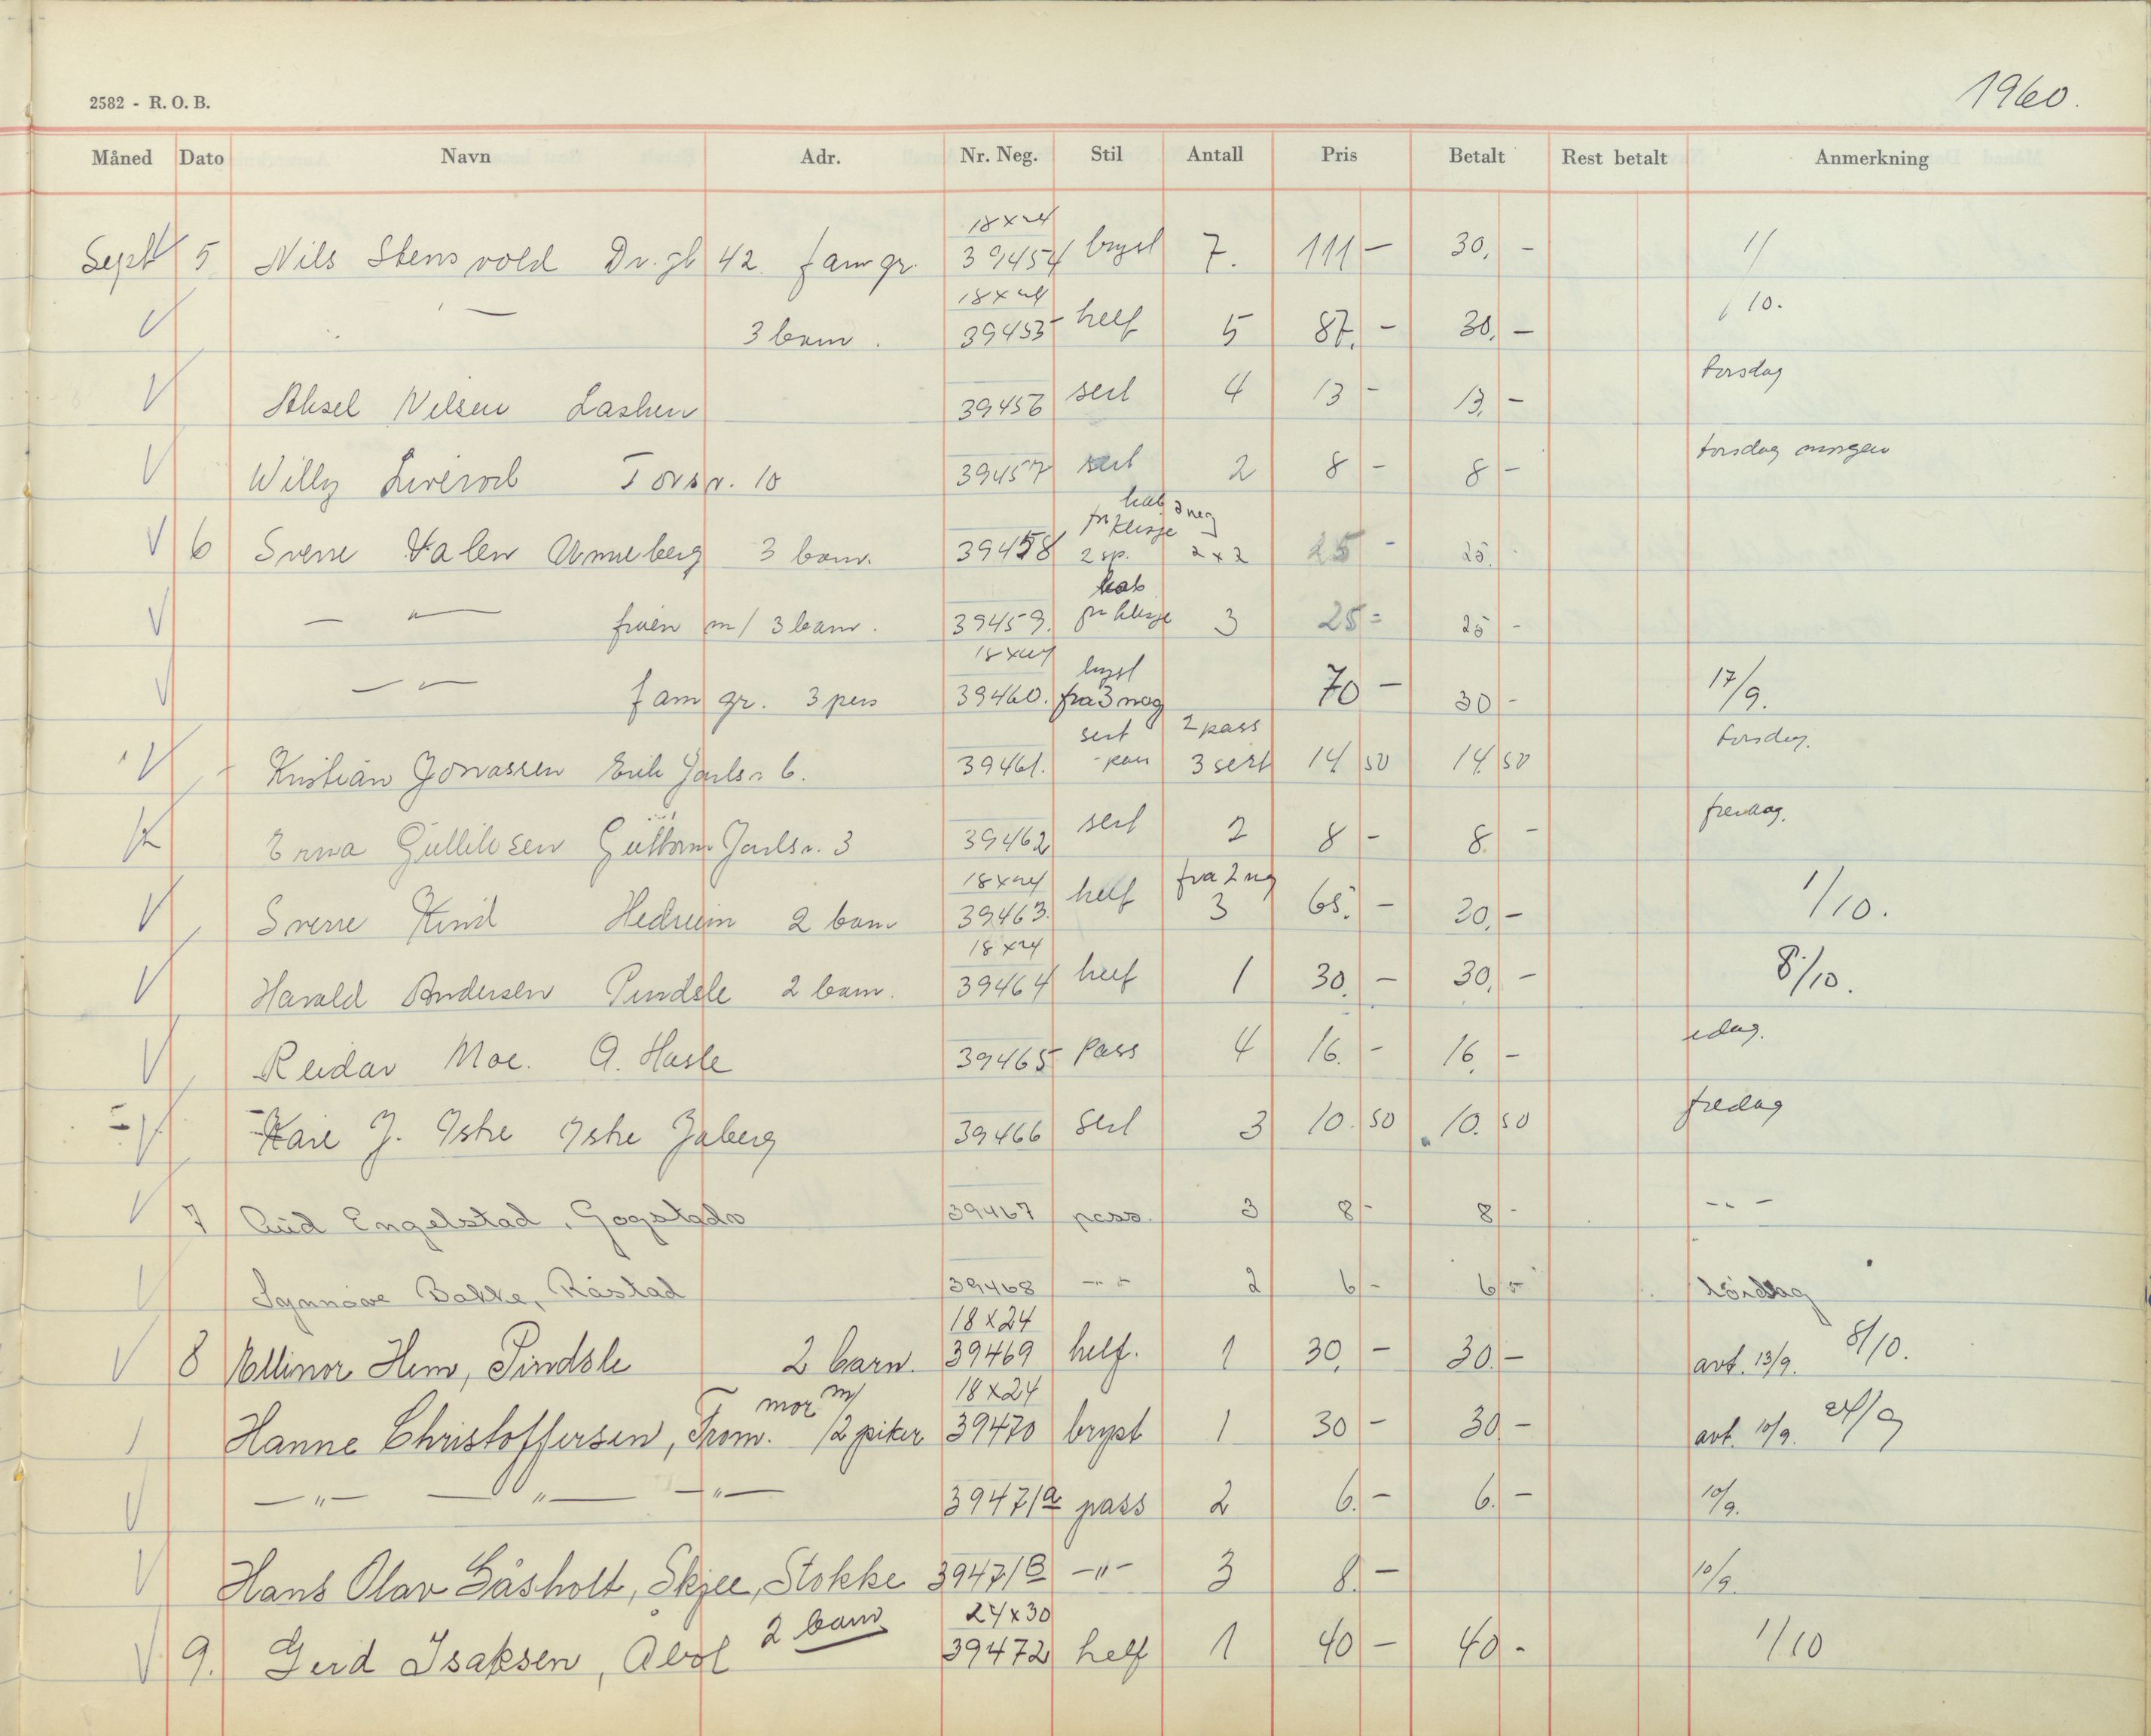 2582 - R. O. B.
1960.
Måned Dato Navn Adr. Nr. Neg. Stil Antall Pris Betalt Rest betalt Anmerkning
18x24
Sept 5 Nils Stensvold Dr. gt 42 fam gr. 39454 bryst 7. 111 - 30, - 1/
18x24
3 barn. 39455 helf 5 87, - 30, - 10.
Aksel Nilsen Lasken 39456 sert 4 13 - 13, - torsdag
Willy Torsv. 10 39457 sert 2 8 - 8 - torsdag morgen
kab 3 neg
fr klisje
6 Sverre Valen Unneberg 3 barn. 39458 2 sp. 2x2 25 - 25.
kab
— " — fruen m/ 3 barn. 39459. fr klisje 3 25 = 25 -
18x24 bryst
— " — fam gr. 3 pers 39460. fra 3 neg 70 - 30 - 17/9.
sert 2 pass
Kristian Jonassen Erik Jarls v. 6. 39461. pass 3 sert 14 50 14 50 torsdag.
Erna Gulliksen Guttorm Jarlsv. 3 39462 sert 2 8 - 8. - fredag.
18x24 fra 2 neg
Sverre Hedrum 2 barn 39463. helf 3 65. - 20, - 1/10.
18x24
Harald Andersen Pindsle 2 barn. 39464 helf 1 30. - 30, - 8/10.
Reidar Moe. Ø. Hasle 39465 Pass 4 16. - 16, - idag.
Kåre J. Istre Istre Jåberg 39466 Sert 3 10. 50 10. 50 fredag
7 Aud Engelstad, Gogstadv 39467 pass. 3 8 - 8 - - " -
Synnøve Bakke, Råstad 39468 - " - 2 6 - 6 - lørdag
18x24
8 Ellinor Hem, Pindsle 2 barn. 39469 helf. 1 30, - 30. - avt. 13/9. 8/10.
mor m/ 18x24
Hanne Christoffersen, Trom. /2 piker 39470 bryst 1 30 - 30 - avt. 10/9. 24/9
— " — — " — — " — 39471a pass 2 6. - 6. - 10/9.
Hans Olav Gåsholt, Skjee, Stokke 39471B - " - 3 8. - 10/9.
2 barn 24x30
9. Gerd Isaksen, Åbol 39472 helf 1 40 - 40 - 1/10